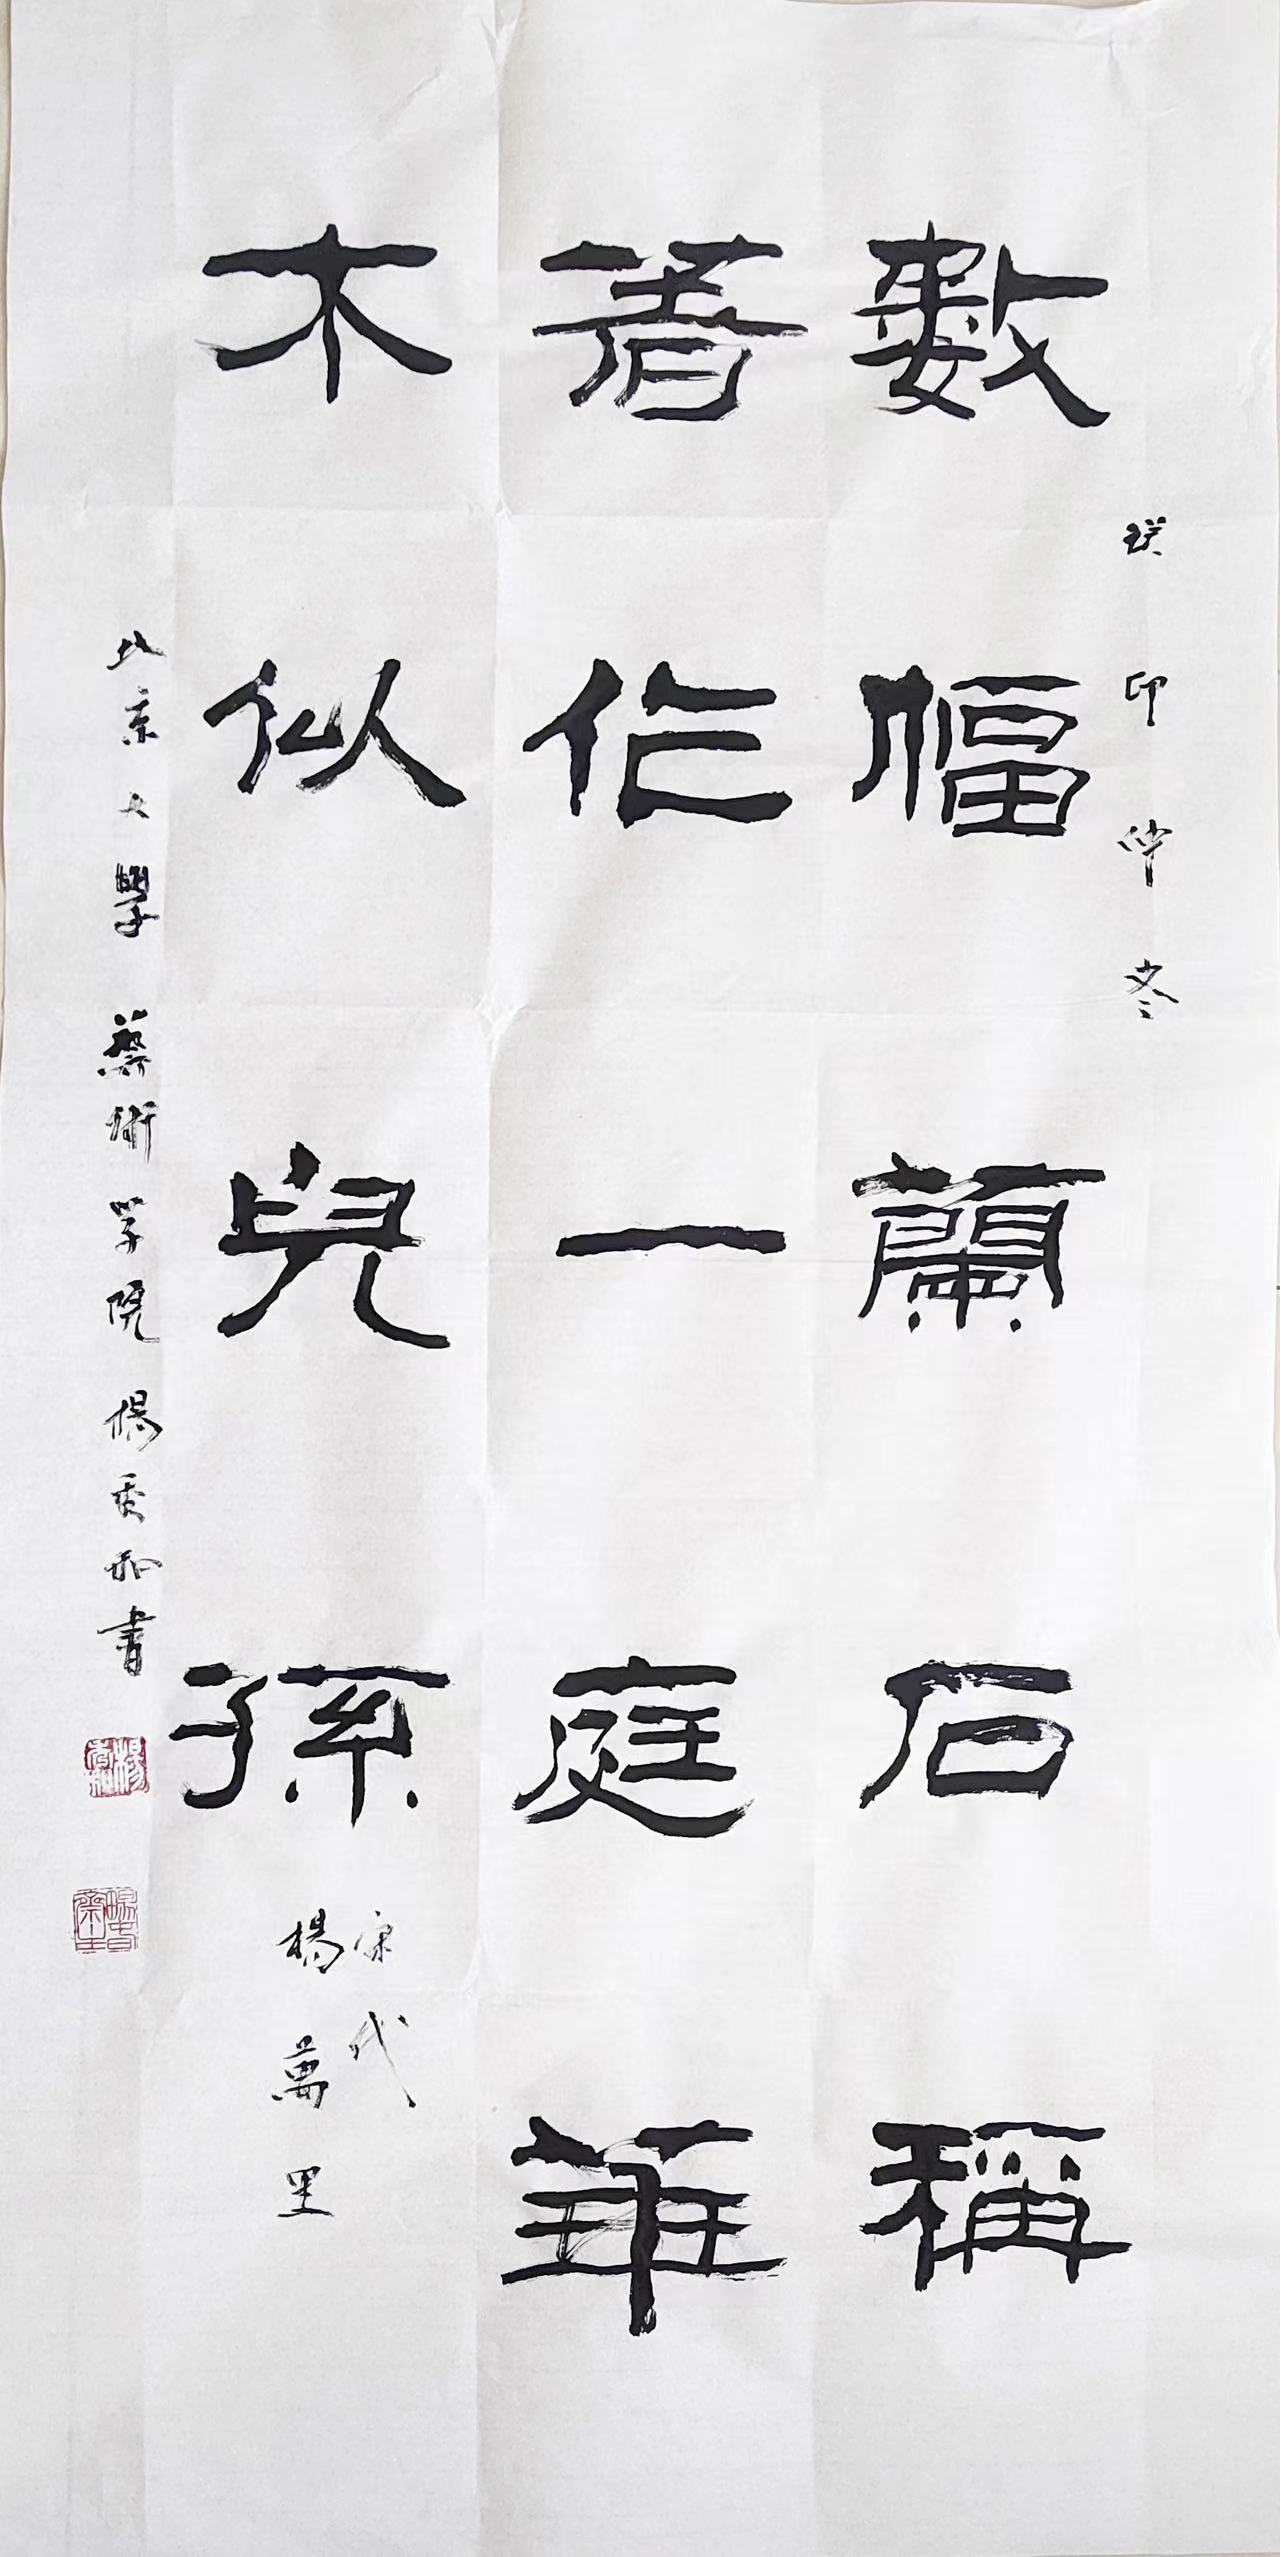 癸卯仲冬
數幅蘭石稱
著作一庭華
木似兒孫
宋代
楊萬里
北京大學藝術学院楊書